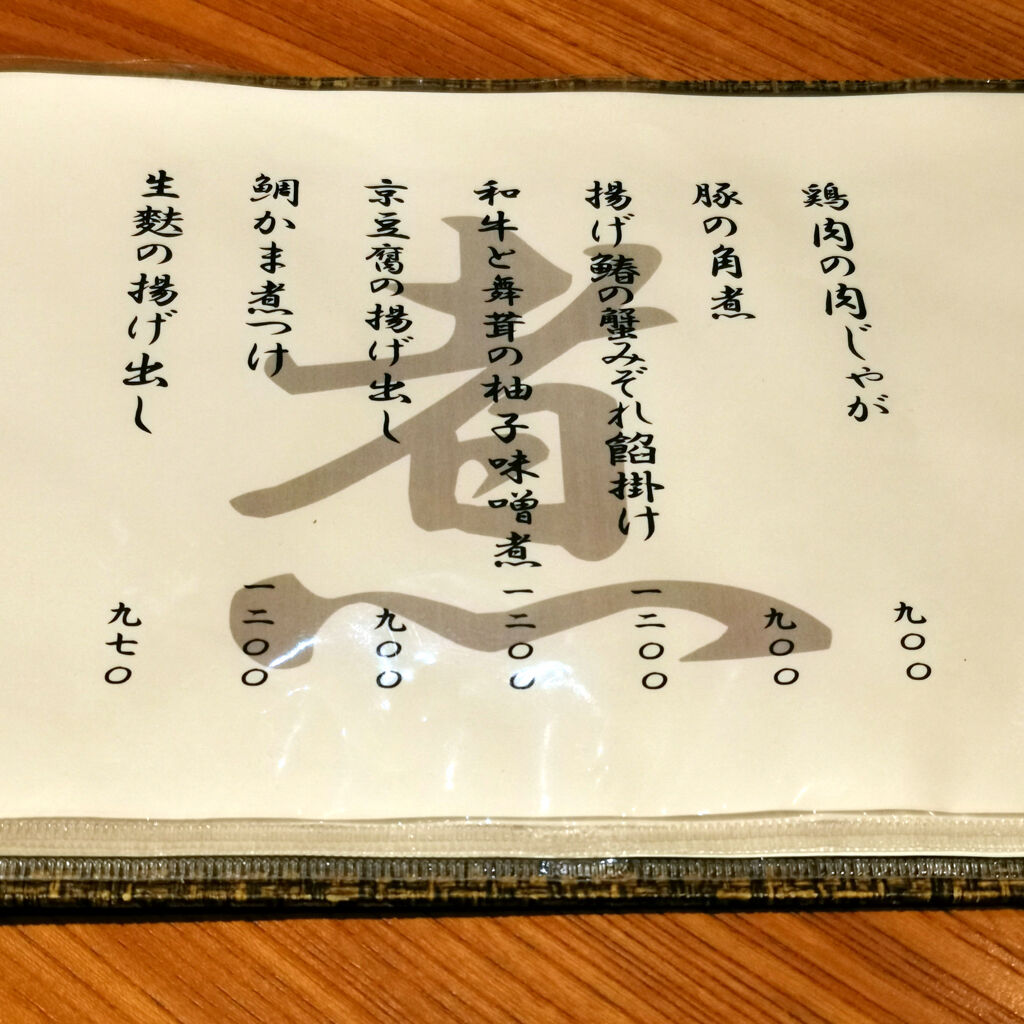 煮
鶏肉の肉じゃが 九〇〇
豚の角煮 九〇〇
揚げ鰆の蟹みぞれ餡掛け 一二〇〇
和牛と舞茸の柚子味噌煮 一二〇〇
京豆腐の揚げ出し 九〇〇
鯛かま煮つけ 一二〇〇
生麩の揚げ出し 九七〇